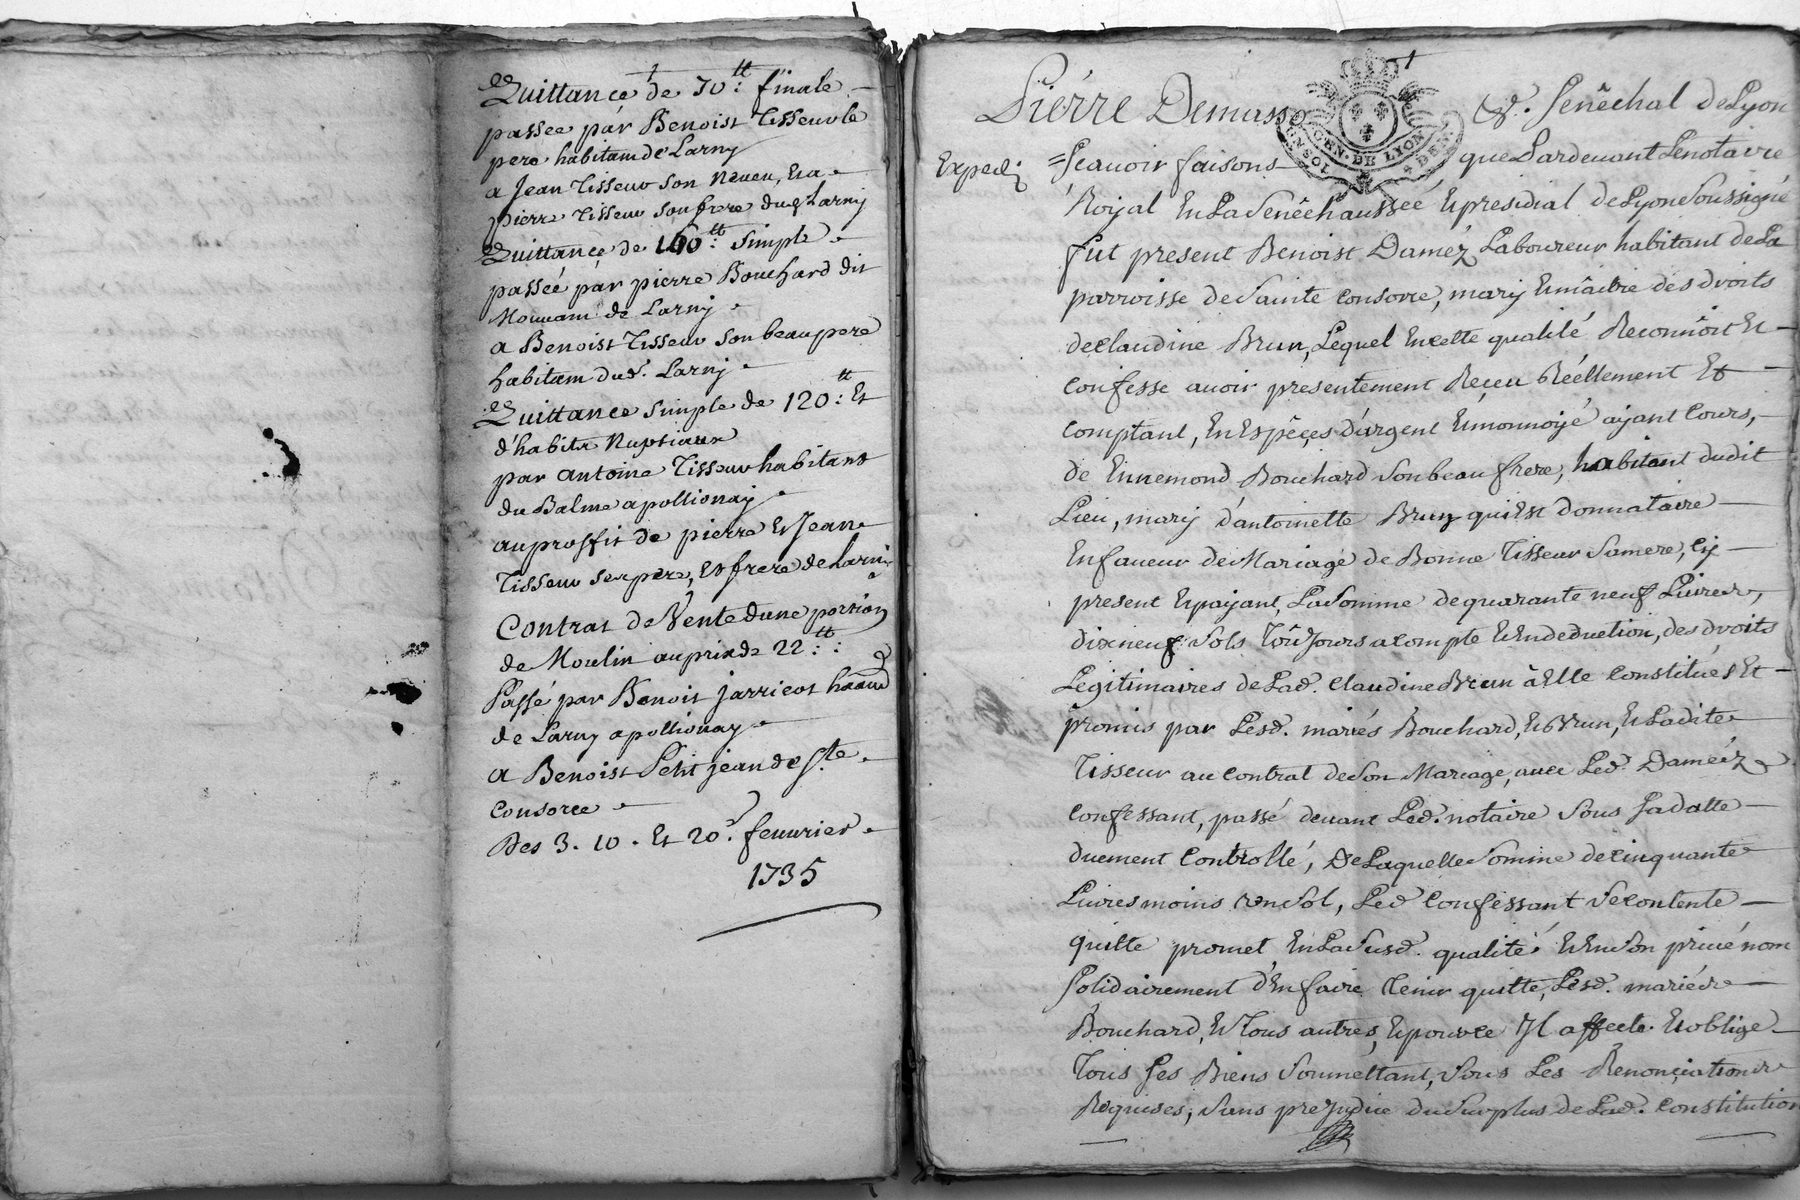 Quittance de 70tt: finale
passée par Benoist Tisseur le
pere habitant de Larny
a Jean Tisseur son neveu, et a
pierre Tisseur son frere dud Larny
Quittance de 100tt: simple
passée par pierre Bouchard dit
de Larny
a Benoist Tisseur son beaupere
habitant dud. Larny
Quittance simple de 120tt: Et
d'habits Nuptiaux
par antoine Tisseur habitant
du Balme apollionay
au proffit de pierre Et Jean
Tisseur ses pere, Et frere de Larny
Contrat de Vente dune portion
de Moulin au prix de 22tt:
Passé par Benoit jarricot
de Larny apollionay
a Benoist Petit jean de Ste
Consorce
Des 3. 10. Et 20. feuurier
1735
Pierre Demasso &. Senêchal de Lyon
Exped: =Scauoir faisons que Pardeuant Le notaire
GEN. DE LYON
Royal En La Senêchaussée Et presidial de Lyon Soussigné
fut present Benoist Daméz Laboureur habitant de La
parroisse de Sainte Consorce, mary Et maître des droits
de Claudine Brun, Lequel En cette qualité Reconnôit Et
confesse auoir presentement Reçeu Réellement Et
comptant, En Espêçes d'argent Et monnoyé ayant Cours,
de Ennemond Bouchard Son beau frere, habitant dudit
Lieu, mary d'antoinette Brun qui Est donnataire
En faueur de Mariage de Bonne Tisseur Sa mere, Cy
present Et payant, La Somme de quarante neuf Liures,
dixneuf Sols Toûjours a Compte Et En deduction, des droits
Legitimaires de Lad. Claudine Brun à Elle Constitués Et
promis par Lesd. mariés Bouchard, Et Brun, Et Ladite
Tisseur au Contrat de Son Mariage, auec Led. Daméz
Confessant, passé deuant Led. notaire Sous Sa datte
duement Controllé, De Laquelle Somme de Cinquante
Liures moins un Sol, Led. Confessant Se contente
quitte promet, En La Susd. qualité Et En Son priué nom
Solidairement d'En faire Tenir quitte, Lesd. mariés
Bouchard, Et Tous autres, Et pour ce Jl affecte Et oblige
Tous Ses Biens Soumettant, Sous Les Renonçiations
Requises, Sans prejudice du Surplus de Lad. Constitution